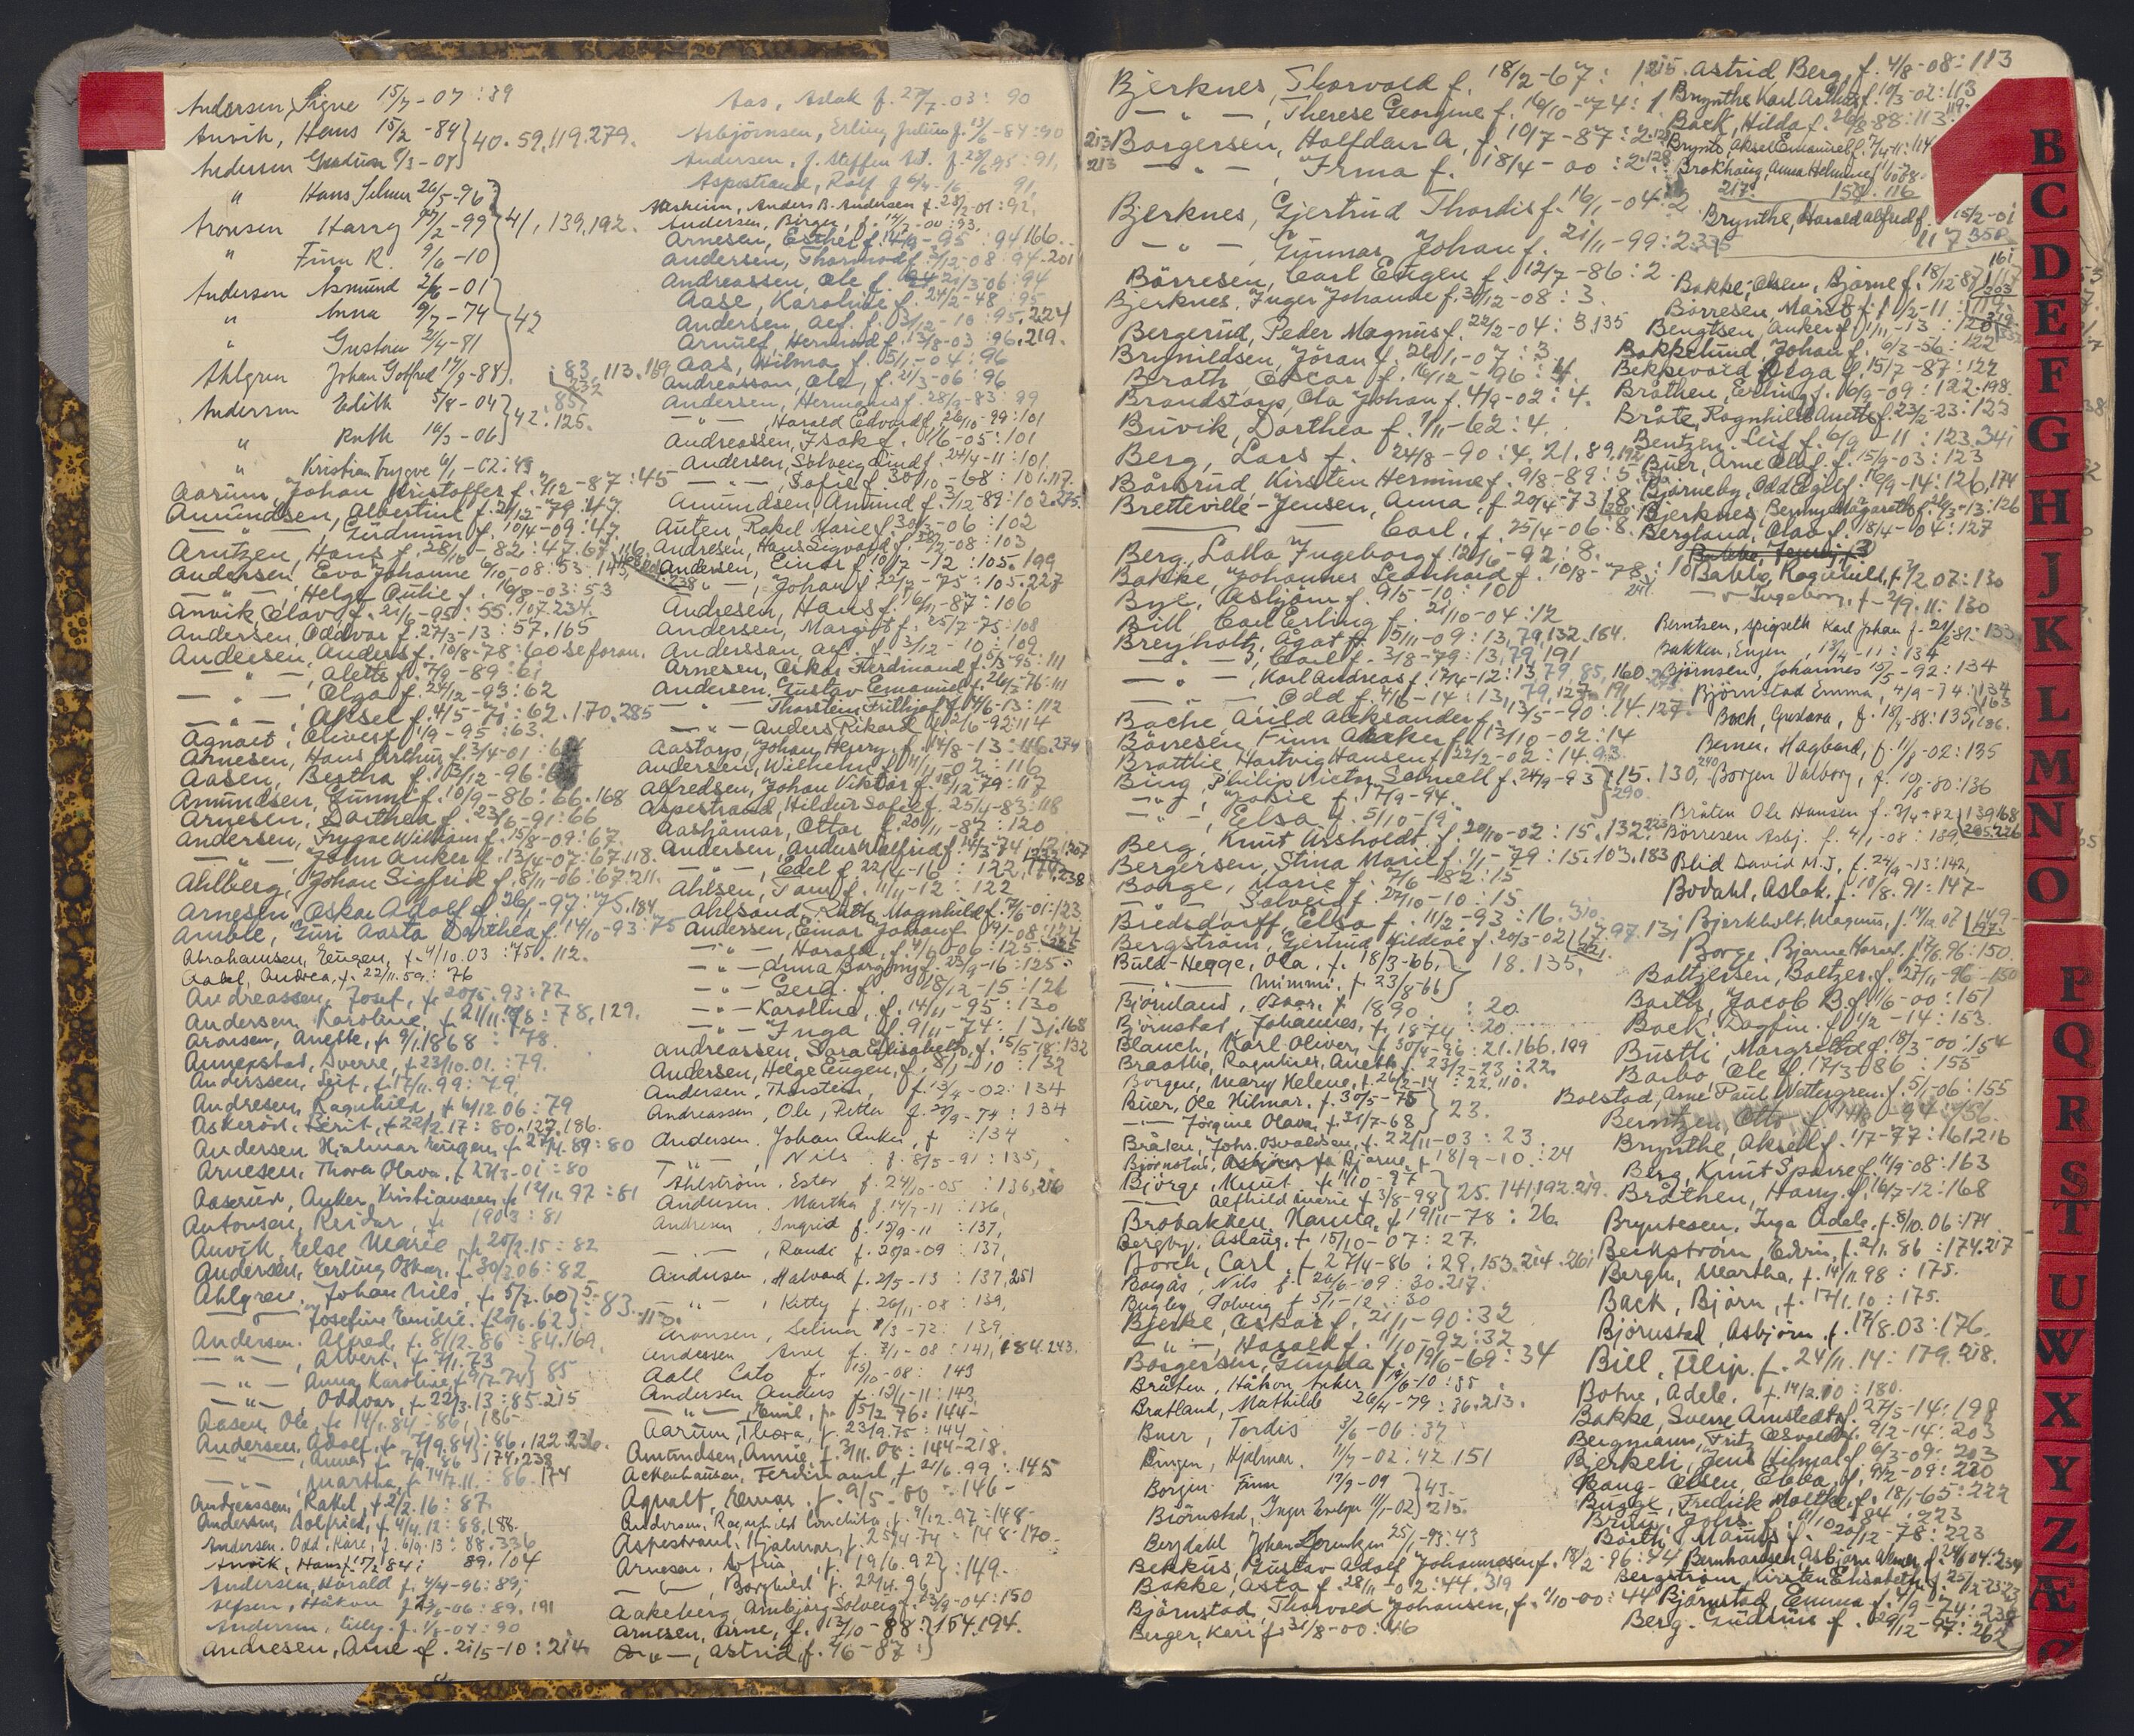 Andersen, Signe 15/7-07:39
Anvik, Hans 15/2-84 } 40.59.119.279.
Andersen Gudrun
" Hans Selmer 26/5-96
Aronsen Harry 27/2-99 } 41,139,192.
" Finn R. 9/6-10
Andersen Asmund 2/6-01
" Anna 9/7-74 } 42
" Gustav 21/4-81
Ahlgren Johan Gotfred 17/9-88 :83.113.169
Andersen Edith 5/8-04 } 42.125.
" Ruth 10/3-06
" Kristian Trygve 6/1-02:43
Aarum, Johan Kristoffer f. 7/12-87:45
Amundsen, Albertine f. 21/12-79:47.
— " — , Gudrun f. 10/4-09:47.
Arntzen, Hans f. 28/10-82:47.67.116.
Andersen, Eva Johanne 6/10-08:53
— " — , Helge Outie f. 16/8-03:53
Anvik, Olav f. 21/6-95:55.107.234.
Andersen, Oddvar f. 27/3-13:57.165
Andersen, Anders f. 10/8-78:60 se foran.
— " — , Alette f. 7/9-89:61
— " — , Olga f. 29/12-93:62
— " — , Aksel f. 4/5-71:62.170.285
Agnalt, Oliver f. 1/9-95:63.
Arnesen, Hans Arthur f. 3/4-01:
Aasen, Bertha f. 13/12-96:
Amundsen, Gunni f. 10/9-86:66.168
Arnesen, Dorthea f. 23/6-91:66
Andersen, Trygve William f. 15/8-09:67.
— " — , John Anker f. 13/4-07:67.118.
Ahlberg, Johan Sigfrid f. 8/11-06:67.211.
Arnesen, Oskar Adolf f. 26/1-97:75.184
Amble, Guri Aasta Dorthea f. 14/10-93:75
Abrahamsen, Eugen, f. 4/10.03:75.112.
Aabel, Andrea, f. 22/11.59:76
Andreassen, Josef, f. 20/5.93:77
Andersen, Karoline, f. 21/11.98:78,129.
Aronsen, Aneste, f. 9/1.1868:78.
Annepstad, Sverre, f. 23/10.01.:79.
Anderssen, Leif, f. 17/11.99:79.
Andresen, Ragnhild, f. 6/12.06:79
Askerød, Berit, f. 22/2.17:80.127.186.
Andersen Hjalmar Eugen, f. 27/4.89:80
Arnesen, Thora Olava, f. 27/3-01:80
Aaserud, Anker Kristiansen, f. 12/11.97:81
Antonsen, Reidar, f. 1903:81
Anvik, Else Marie, f. 25/2.15:82
Andersen, Erling Oskar, f. 30/2.06:82
Ahlgren, Johan Nils, f. 5/7.60 } 83.
— " — Josefine Emilie, f. 20/6.62
Andersen, Alfred, f. 8/12.86:84.169.
— " — , Albert, f. 7/1.73 } 85
— " — Anna Karoline f. 9/7.74
— " — Oddvar, f. 22/3.13:85.215
Aasen, Ole, f. 14/1.84:86, 186-
Andersen, Adolf, f. 7/9.84:86.122.236.
— " — Anna, f. 7/9.86 } 174.238
— " — , Martha, f. 14/7.11:86.174
Andreassen, Rakel, f. 2/2.16:87.
Andersen, Solfried, f. 4/4.12:88, 188-
Andersen, Odd Kåre, f. 6/9.13:88.336
Anvik, Hans f. 15/2.84: 89.104
Andersen, Harald f. 4/4-96:89;
Alfsen, Håkon f. 23/5-06:89.191
Andersen, Lilly f. 1/8-07:90
Andresen, Arne f. 21/5-10:214
Aas, Aslak f. 27/7.03: 90
Asbjørnsen, Erling Julius f. 13/6-84:90
Andersen, J. Steffen
Aspestrand, Rolf f. 6/4-16 91.
Aasheim, Anders B. Andersen f. 23/2-01:92.
Andersen, Birger, f. 14/2-00:93.
Arnesen, Esther f. 14/9-95:94.166.
Andersen, Thormod f. 7/12-08:94.201
Andreassen, Ole f. 21/3-06:94
Aase, Karoline f. 24/2-48:95
Andersen, Alf. f. 13/12-10:95.224
Arnulf, Hermod f. 13/8-03:96.219.
Aas, Hilma f. 15/1-04:96
Andreassen, Ole, f. 21/3-06:96
Andersen, Hermans f. 28/9-83:99
— " — , Harald Edvard f. 26/10-99:101
Andreassen, Isak f. 1/6-05:101
Andersen, Solveig Lind f. 24/4-11:101
— " — , Sofie f. 30/10-68:101.117.
Amundsen, Amund f. 3/12-89:102.275.
Auten, Rakel Marie f. 30/3-06:102
Andresen, Hans Sigvald f. 28/2-08:103
Andersen, Einar f. 10/7-12:105.199
— " — , Johan f. 22/2-75:105.227
Andresen, Hans f. 16/11-87:106
Andersen, Margit f. 25/7-75:108
Anderssan, Alf. f. 3/12-10:109
Arnesen, Oskar Ferdinand f. 1/3-95:111
Andersen, Gustav Emanuel f. 26/3-76:111
— " — Thorstein Frithjof f. 4/6-13:112
— " — Anders Rikard f. 2/6-92:114
Aastorp, Johan Henry, f. 14/8-13:116.274
Andersen, Wilhelm f. 11/11-02:116
Alfredsen, Johan Viktor f. 18/12 79:117
Aspestrand, Hildur Sofie f. 25/4-83:118
Aashamar, Ottar f. 20/11-87:120
Andersen, Anders Walfrid f. 14/3-74
— " — , Edel f. 22/4-16:122,174,238
Ahlsen, Tom f. 11/11-12:122
Ahlsand, Ruth Magnhild f. 7/6-01:123
Andersen, Einar Johan f. 9/1-08:124
— " — Harald f. 4/6-06:125
— " — Anna Borgny f. 23/9-16:125
— " — Gerd f. 28/12-15:126
— " — Karoline, f. 14/11-95:130
— " — Inga f. 9/11-74:131.168
Andreassen, Sara Elisabeth, f. 15/5-18:132
Andersen, Helge Eugen, f. 5/1-10:132
Andersen, Thorstein, f. 13/4-02:134
Andreassen, Ole, Petter f. 29/9-74:134
Andersen, Johan Anker, f. :134
— " — , Nils f. 8/5-91:135,
Ahlström, Ester f. 24/10-05:136,216
Andersen, Martha f. 14/7-11:136,
Andresen, Ingrid f. 15/9-11:137,
— " — , Randi f. 20/2-09:137,
Andersen, Halvard f. 2/5-13:137,251
— " — , Kitty f. 26/11-08:139,
Aronsen, Selmer 1/3-72:139,
Andersen Arne f. 7/1-08:141,184.243.
Aall Cato f. 15/10-08: 143
Andersen Anders f. 12/1-11:143,
— " — , Emil, f. 15/2 76:144-
Aarum, Thora, f. 23/9.75:144
Amundsen, Annie, f. 3/11.08:144-218.
Ackenhausen, Ferdinand, f. 21/6.99:145
Agnalt, Einar, f. 9/5-00-146-
Andersen, Ragnhild Conchita, f. 4/12.97-148-
Aspestrand, Hjalmar, f. 25/4-74:148-170-
Arnesen, Sofia, f. 19/6.92 } :149-
— " — , Borghild f. 22/4.96
Aakeberg, Ambjør Solveig f. 23/9-04:150
Arnesen, Arne, f. 13/10-88 } 154.194.
— " — , Astrid, f. 9/6-87
Bjerknes, Thorvald f. 18/2-67: 1.
— " — , Therese Georgine f. 16/10-74:1.
213 Borgersen, Halfdan A, f. 10/7-87:2.
213 — " — , Irma f. 18/4-00:2.
Bjerknes, Gjertrud Thordis f. 16/1-04:2
— " — , Gunnar Johan f. 21/11-99:2
Börresen, Carl Eugen f. 12/7-86:2
Bjerknes, Inger Johanne f. 31/12-08:3.
Bergerud, Peder Magnus f. 22/2-04:3.135
Brynildsen, Jöran f. 26/1-07:3
Brath, Oscar f. 16/12-96:4.
Brandstorp, Ola Johan f. 4/9-02:4.
Buvik, Dorthea f. 1/11-62:4.
Berg, Lars f. 24/8-90:4.21.89.192
Bårbrud Kirsten Hermine f. 9/8-89:5
Bretteville-Jensen, Anna, f. 20/4-73:8
Carl, f. 25/4-06:8.
Berg, Lalla Ingeborg f. 12/6-92:8.
Bakke, Johannes Leonhard f. 10/8-78:10
Bye, Asbjørn f. 9/5-10:10
Bill Carl Erling f. 21/10-04:12
Breyholtz, Ågot f. 15/11-09:13,79,132.164.
— " — , Carl f. 3/8-79:13,79,191
— " — , Karl Andreas f. 17/4-12:13,79,85,160.
— " — , Odd f. 4/6-14:13,79,127,191
Bache Arild Aleksander f. 13/5-90:14.127.
Börresen Finn Anker f. 13/10-02:14
Brattlie, Hartvig Hansen f. 22/2-02:14.93.
Bing, Philip Victor Samuel f. 24/9-93 } 15.130,
— " — , Josie f. 17/9-94. 290.
— " — , Elsa f. 5/10-19
Berg, Knut Aksholdt f. 20/10-02:15.132.223
Bergersen, Stina Marie f. 1/1-79:15.103.183
Borge, Marie f. 7/6-82:15
— " — Solveig f. 27/10-10:15
Biedsdorff, Elsa f. 11/2-93:16.310.
Bergström, Gjertrud Hildeve f. 20/3-02 } 17.97.131
Buld-Hegge, Ola, f. 18/3-66, } 18.135.
— " — Mimmi, f. 23/8-66
Björnland, Borr, f. 1890:20.
Björnstad, Johannes, f. 1874:20.
Blauch, Karl Oliver, f. 30/4-96:21.166.199
Braathe, Ragnhild, Aneth f. 23/2-23:22.
Borgen, Mary Helene, f. 26/2-14:22.110.
Buer, Ole Hilmar, f. 30/5-75 } 23.
— " — Jörgine Olava, f. 31/7-68
Bråten, Johs. Osvaldsen, f. 22/11-03:23.
Björnstad, Bjarne f. 18/9-10:24
Björge, Knut f. 14/10-97 } 25.141,192.219.
— " — Alfhild Marie f. 3/8-98
Brobakken, Hanna, f. 19/11-78:26.
Bergby, Aslaug, f. 15/10-07:27.
Borch, Carl, f. 27/4-86:29,153.214.261
Borgås, Nils f. 20/6-09:30.217.
Bugby, Solveig f. 5/1-12:30
Bjerke, Oskar f. 21/11-90:32
— " — , Harald f. 11/10-92:32
Borgersen, Gunda f. 19/6-69:34
Bråten, Håkon Anker 14/6-10:35
Bratland, Mathilde 26/4-79:36.213.
Buer, Tordis 3/6-06:37
Bingen, Hjalmar. 11/7-02:42.151
Borgen Finn 12/9-09 } 43-
Björnstad, Inger 11/1-02 215.
Bergdahl Johan 25/1-93:43
Bekkus, Gustav Adolf Johannesen f. 18/2-96:44
Bakke, Asta f. 28/11-02:44.319
Björnstad, Thorvald Johansen, f. 1/10-00:44
Berger, Kari f. 31/8-00:46
215. Astrid Berg, f. 4/8-08:113
Brynthe Karl Arthur f. 10/3-02:113
Back, Hilda f. 26/8-88:113.
Brynte, Aksel Emanuel f. 7/4-11:114
Brokhaug, Anna Helmine
217. 158.116
Brynthe, Harald Alfred f. 15/2-01
117 350
Bakke, Olsen, Bjarne f. 18/12-87:117
Börresen, Marit f. 1/2-11:119.
Bengtsen, Anker f. 1/11-13:120
Bakkelund, Johan f. 6/3-56:122
Bekkevold Olga f. 15/7-87:122
Bråthen, Erling f. 16/9-09:122.198.
Bråte, Ragnhild Aneth f. 23/2-23:123
Bentzen, Leif f. 6/9-11:123.341
Buer, Arne Olaf. f. 15/9-03:123
Bjørneby, Odd Egil f. 16/9-14:126,174
Bjerknes, Benny Margareth f. 26/3-13:126
Bergland, Olav f. 18/4-04:127
Bakke, Ragnhild, f. 7/2 07:130
— " — Ingeborg, f. 2/9.11:130
Berntsen, Spigseth Karl Johan f. 21/6 81:133
Bakken, Eugen, 13/4-11:134
Björnsen, Johannes 15/5-92:134
Björnstad Emma, 4/9-74:134
Bach, Gustava, f. 18/2-88:135,186.
Berner, Hagbard, f. 11/8-02:135
Borgen Valborg, f. 10/8-80:136
Bråten Ole Hansen f. 3/4-82:139.168
Börresen Asbj. f. 4/1-08:139,205.226
Blid David M.J, f. 24/9-13:142,
Bodahl, Aslak, f. 10/8.91:147-
Bjerkholt, Magnus, f. 14/12 07 } 149-
Borge, Bjarne Harald, f. 17/6.96:150.
Baltzersen, Baltzer f. 27/11-96-150
Barth, Jacob B. f. 1/6-00:151
Bock, Dagfin f. 01/2-14:153.
Bustli, Margrethe f. 18/3-00:154
Barbo, Ole f. 17/3-86:155
Bolstad, Arne Paul Wettergren f. 5/1-06:155
Berntzen, Otto
Brynthe, Aksel f. 1/7-77:161.216
Berg, Knut Sparre f. 11/9-08:163
Bråthen, Harry f. 16/7-12:168
Bryntesen, Inga Adele, f. 5/10.06:174
Beckström, Edvin, f. 2/1.86:174.217
Bergh, Martha, f. 14/11.98:175.
Back, Björn, f. 17/1.10:175.
Björnstad, Asbjörn, f. 17/8.03:176.
Bill, Filip, f. 24/11.14:179.218.
Botne, Adele, f. 14/2.00:180.
Bakke, Sverre Amstedt f. 27/5-14:198
Bergmann, Fritz Osvald f. 9/2-14:203
Bjerkeli, Jens Hilmar f. 6/3-09:203
Bang-Olsen, Ebba, f. 9/2-09:220
Bugge, Fredrik Moltke, f. 18/1-65:222
Bruu, Johs. f. 11/10-84:223
Barth, Magnus f. 20/12-78:223
Bernhardsen Asbjørn Werner f. 24/6 04:234
Bergström, Kirsten Elisabeth f. 25/12-23:23
Björnstad, Emma f. 4/9-74:238
Berg, Gudrun f. 29/12-97:262
B
C
D
E
F
G
H
J
K
L
M
N
O
P
Q
R
S
T
U
W
X
Y
Z
Æ